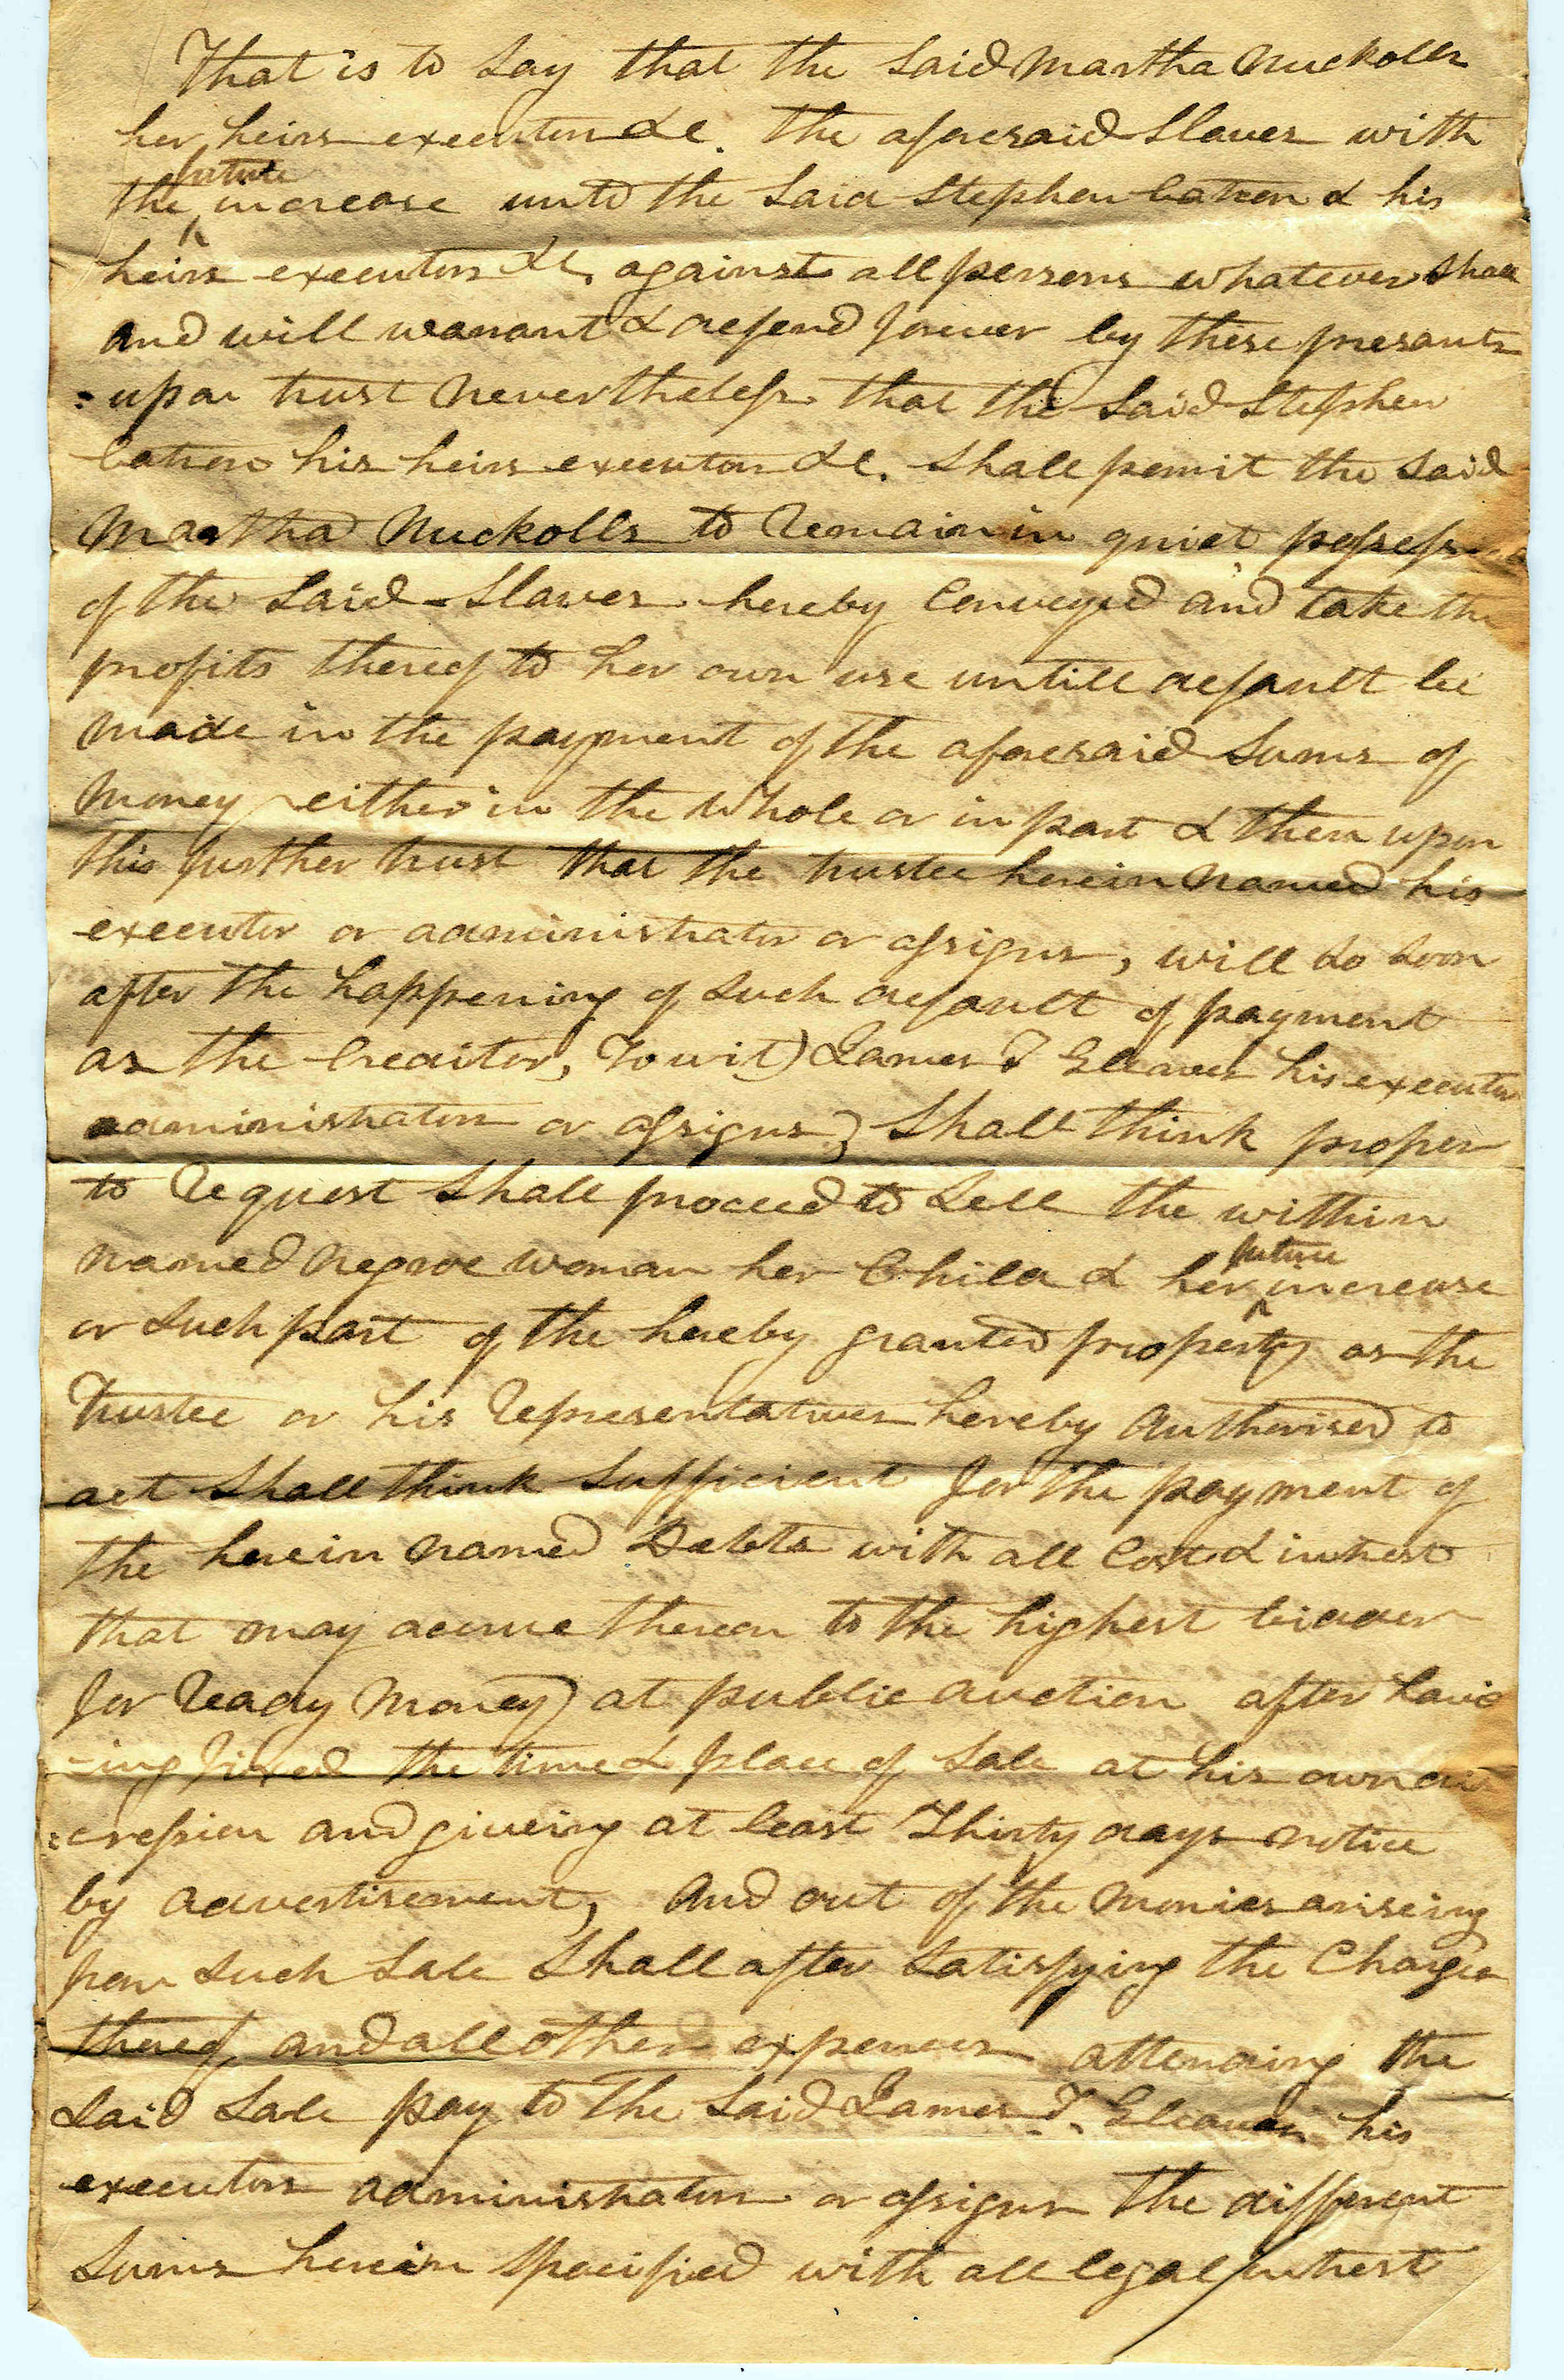 That is to Say that the Said Martha Nuckolls
her heirs executors &c. the aforesaid Slaves with
the future increase unto the Said Stephen & his
heirs executors &c. against all persons whatever Shall
and will warrant & defend forever by these presants
=upon trust nevertheless that the Said Stephen
his heirs executors &c. Shall permit the Said
Martha Nuckolls to Remain in quiet
of the Said Slaves hereby Conveyed and take the
profits thereof to her own use untill default be
made in the payment of the aforesaid Sums of
Money either in the Whole or in part & then upon
this further trust that the trustee herein Named his
executor or administrator or assigns, will so soon
after the happening of Such default of payment
as the Creditor, Towit) James T his executors
administrators or assigns) Shall think proper
to Request Shall proceed to Sell the within
Named Negroe woman her Child & her future increase
or Such part of the hereby granted property as the
Trustee or his Representatives hereby Authorised to
act Shall think Sufficient for the payment of
the herein Named Debts with all Cost & intrest
that may accrue thereon to the highest bidder
for Ready Money) at public auction after havi
-ing fixed the time & place of Sale at his own dis
=cression and giveing at least Thirty days notice
by advertisement, And out of the Monies ariseing
from Such Sale Shall after Satisfying the Charges
thereof, and all other expences attending the
Said Sale pay to the Said James T. his
executors administrators or assigns the different
Sums herein Specified with all legal intrest